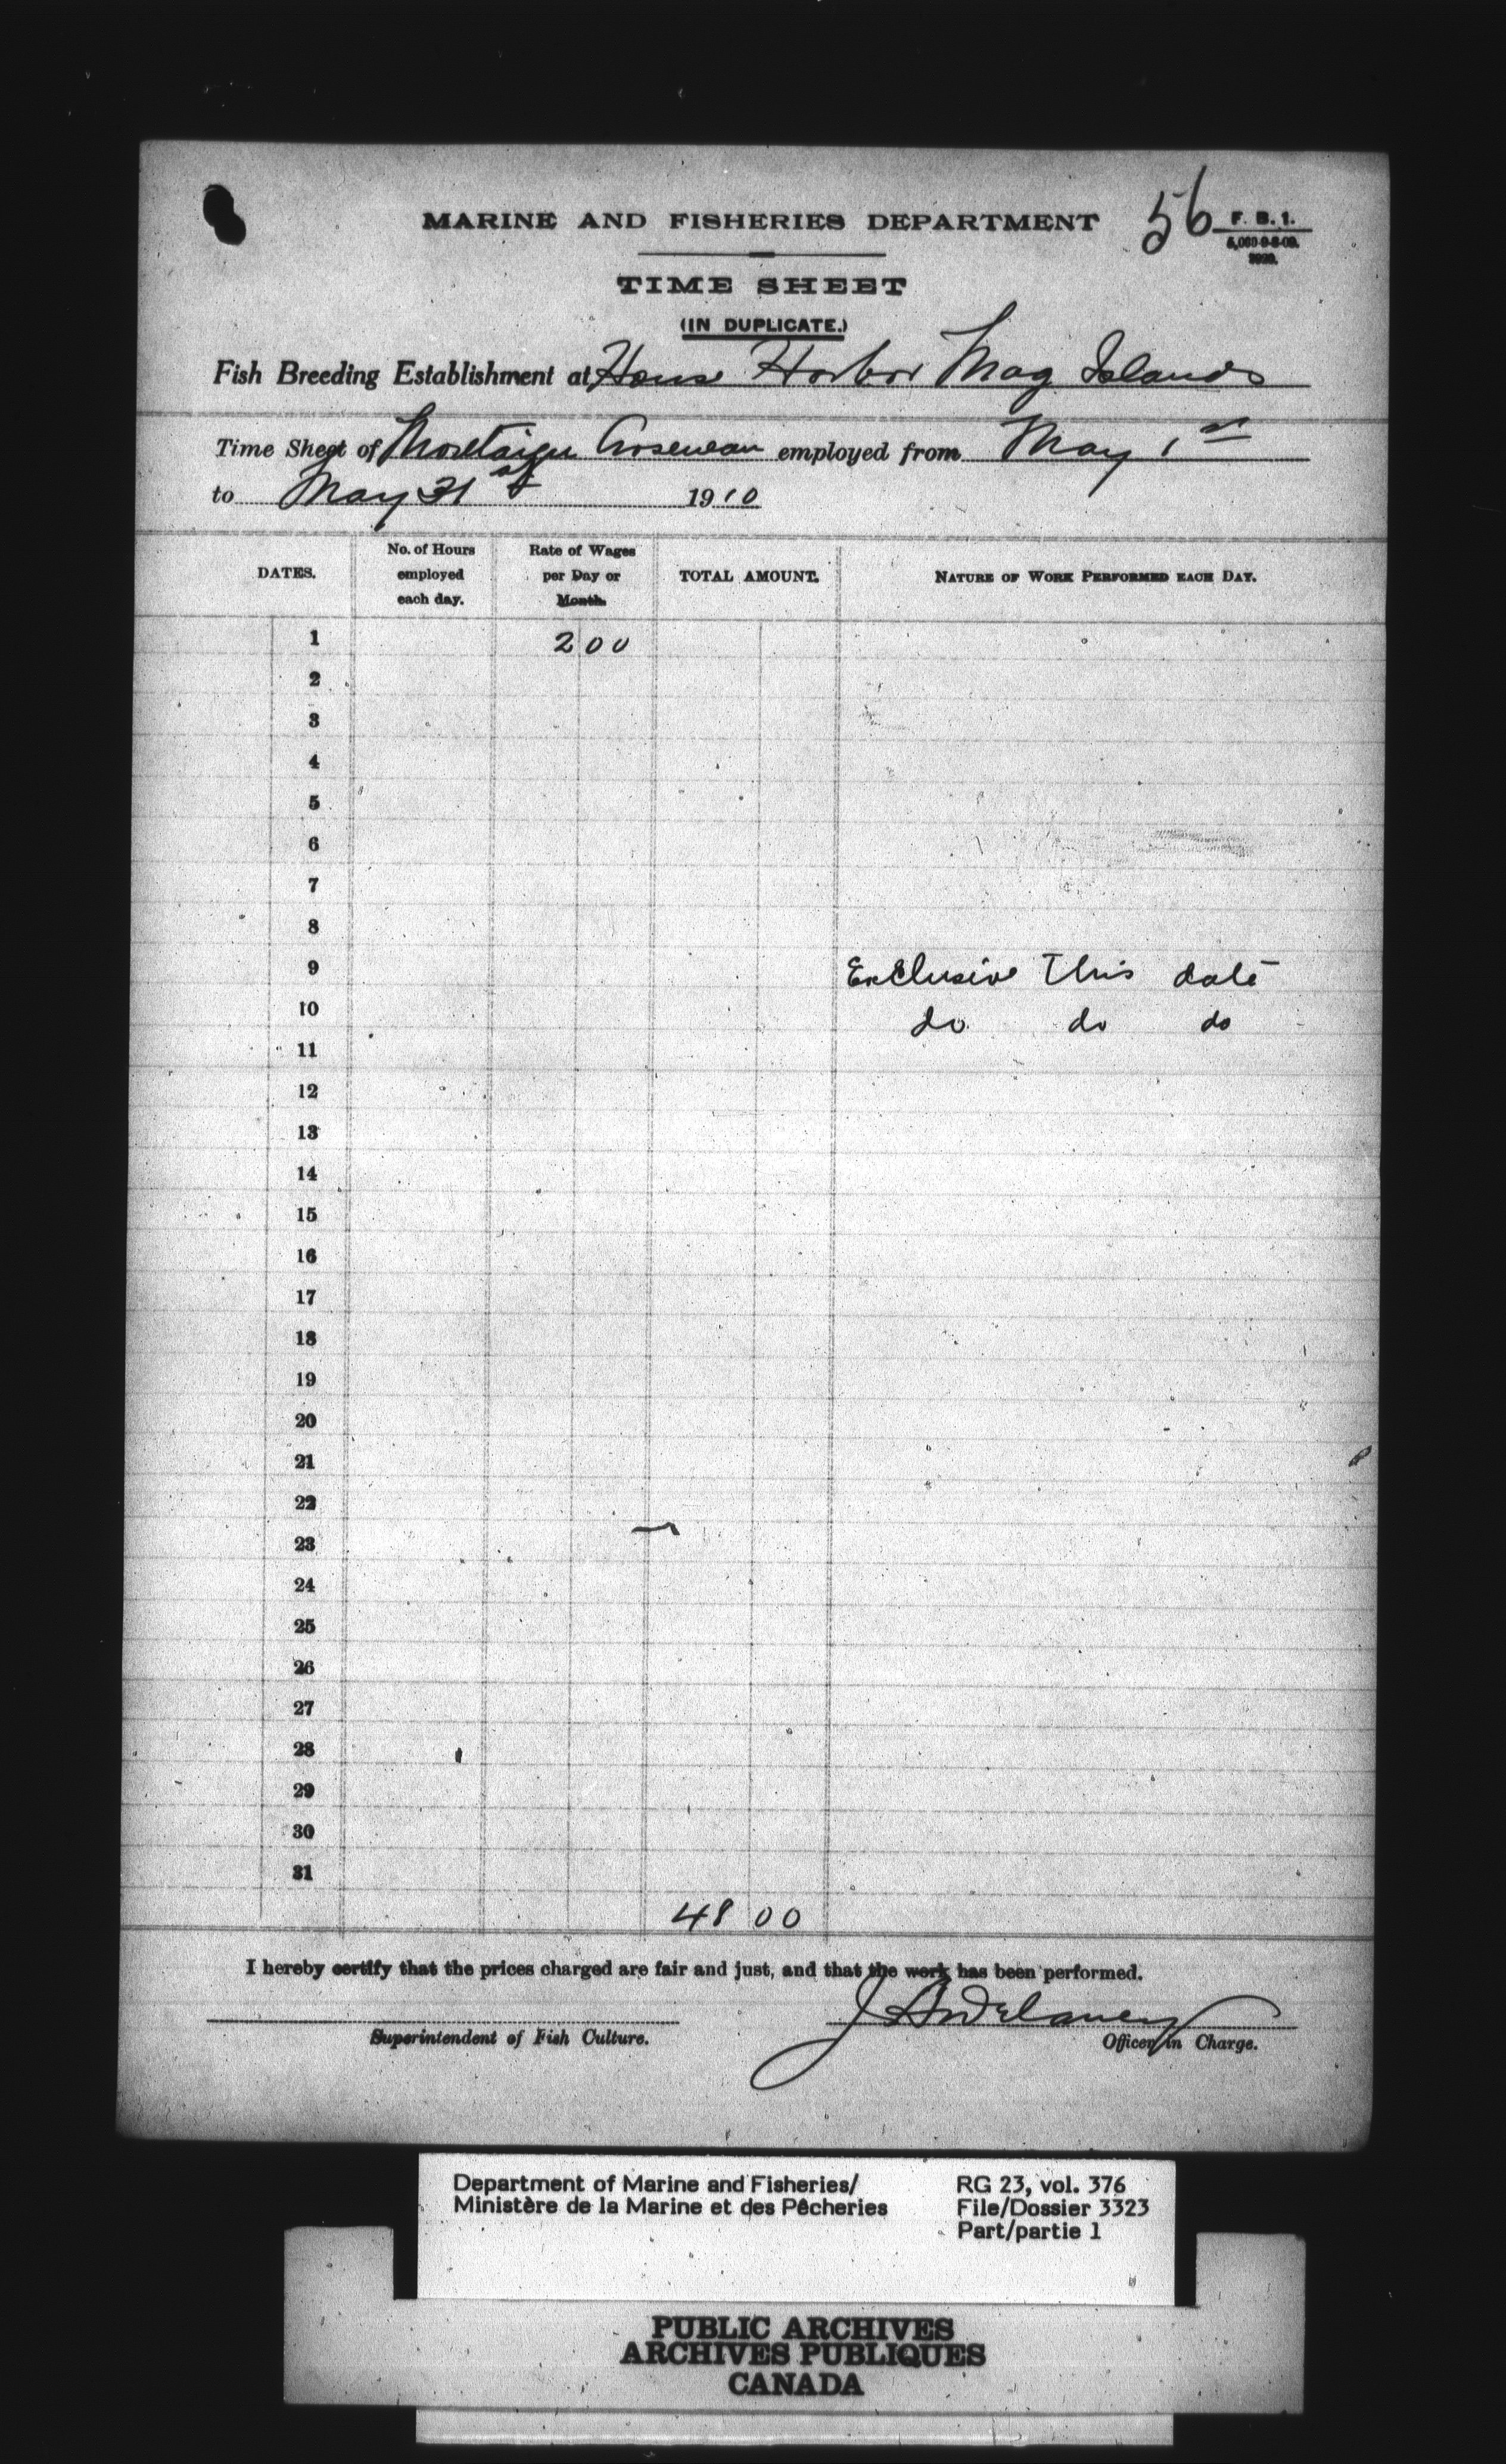 MARINE AND FISHERIES DEPARTMENT
56
F. B. 1.
TIME SHEET
(IN DUPLICATE.)
Fish Breeding Establishment at House Harbor Mag Islands
Time Sheet of employed from May 1st
to May 31st 1910
DATES. No. of Hours employed each day. Rate of Wages per Day or Month. TOTAL AMOUNT. NATURE OF WORK PERFORMED EACH DAY.
1 2 00
2
3
4
5
6
7
8
9 Exclusive This date
10 do do do
11
12
13
14
15
16
17
18
19
20
21
22
23
24
25
26
27
28
29
30
31
48 00
I hereby certify that the prices charged are fair and just, and that the work has been performed.
Superintendent of Fish Culture.
Officer in Charge.
Department of Marine and Fisheries/
Ministère de la Marine et des Pêcheries
RG 23, vol. 376
File/Dossier 3323
Part/partie 1
PUBLIC ARCHIVES
ARCHIVES PUBLIQUES
CANADA